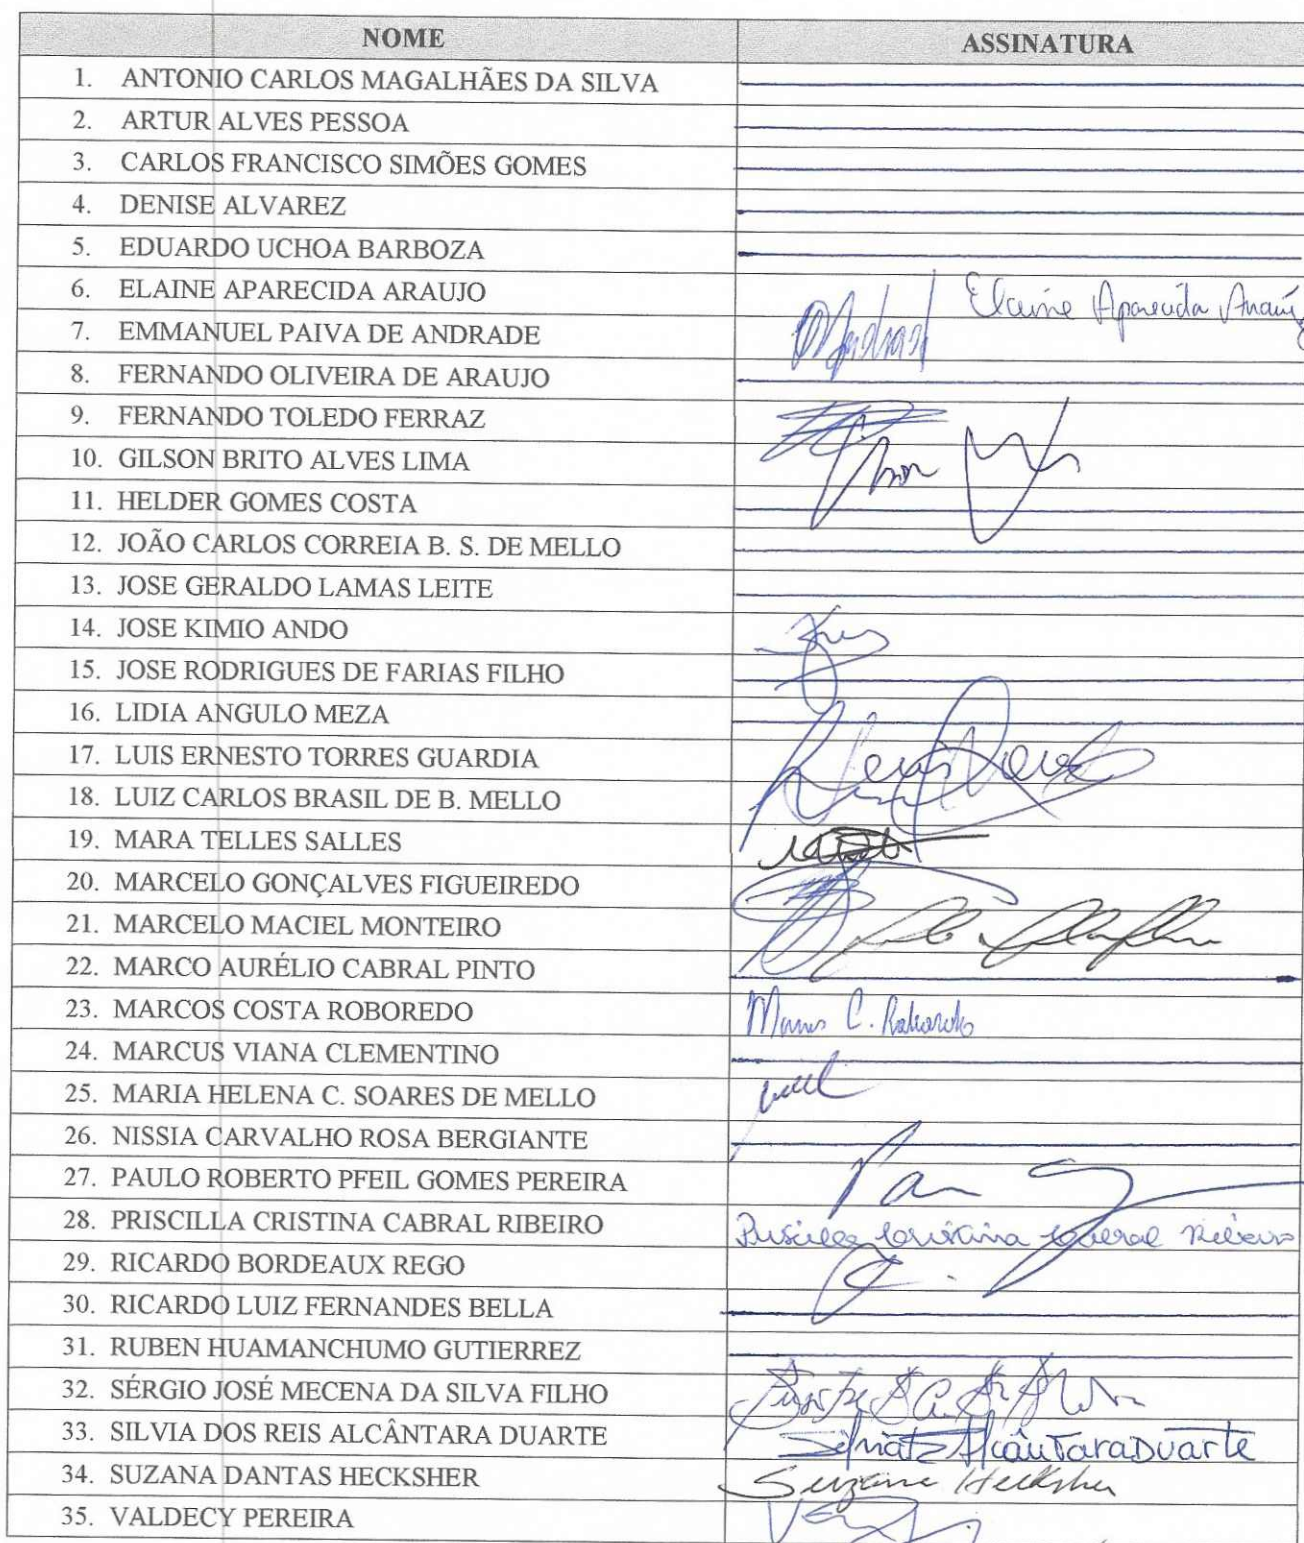 NOME ASSINATURA
1. ANTONIO CARLOS MAGALHÃES DA SILVA
2. ARTUR ALVES PESSOA
3. CARLOS FRANCISCO SIMÕES GOMES
4. DENISE ALVAREZ
5. EDUARDO UCHOA BARBOZA
6. ELAINE APARECIDA ARAUJO Elaine Aparecida Araújo
7. EMMANUEL PAIVA DE ANDRADE
8. FERNANDO OLIVEIRA DE ARAUJO
9. FERNANDO TOLEDO FERRAZ
10. GILSON BRITO ALVES LIMA
11. HELDER GOMES COSTA
12. JOÃO CARLOS CORREIA B. S. DE MELLO
13. JOSE GERALDO LAMAS LEITE
14. JOSE KIMIO ANDO
15. JOSE RODRIGUES DE FARIAS FILHO
16. LIDIA ANGULO MEZA
17. LUIS ERNESTO TORRES GUARDIA
18. LUIZ CARLOS BRASIL DE B. MELLO
19. MARA TELLES SALLES
20. MARCELO GONÇALVES FIGUEIREDO
21. MARCELO MACIEL MONTEIRO
22. MARCO AURÉLIO CABRAL PINTO
23. MARCOS COSTA ROBOREDO Marcos C. Roboredo
24. MARCUS VIANA CLEMENTINO
25. MARIA HELENA C. SOARES DE MELLO
26. NISSIA CARVALHO ROSA BERGIANTE
27. PAULO ROBERTO PFEIL GOMES PEREIRA
28. PRISCILLA CRISTINA CABRAL RIBEIRO Priscilla Cristina Cabral Ribeiro
29. RICARDO BORDEAUX REGO
30. RICARDO LUIZ FERNANDES BELLA
31. RUBEN HUAMANCHUMO GUTIERREZ
32. SÉRGIO JOSÉ MECENA DA SILVA FILHO
33. SILVIA DOS REIS ALCÂNTARA DUARTE Alcântara Duarte
34. SUZANA DANTAS HECKSHER Suzana Hecksher
35. VALDECY PEREIRA